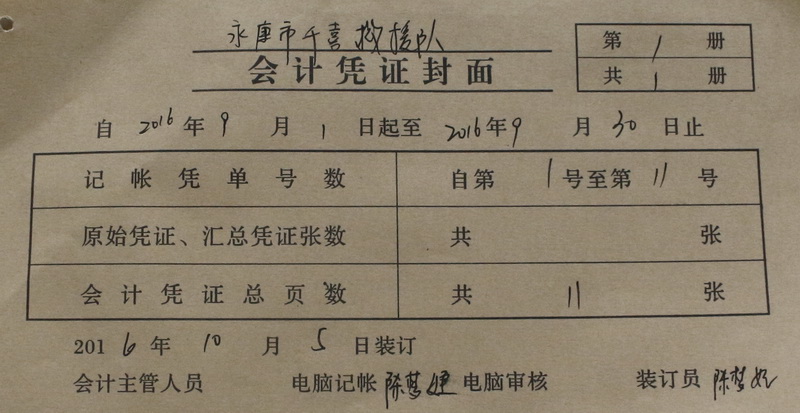 永康市千喜救援队
会计凭证封面
第 1 册
共 1 册
自 2016 年 9 月 1 日起至 2016 年 9 月 30 日止
记帐凭单号数 自第 1 号至第 11 号
原始凭证、汇总凭证张数 共 张
会计凭证总页数 共 11 张
2016 年 10 月 5 日装订
会计主管人员 电脑记帐 陈梦 电脑审核 装订员 陈梦